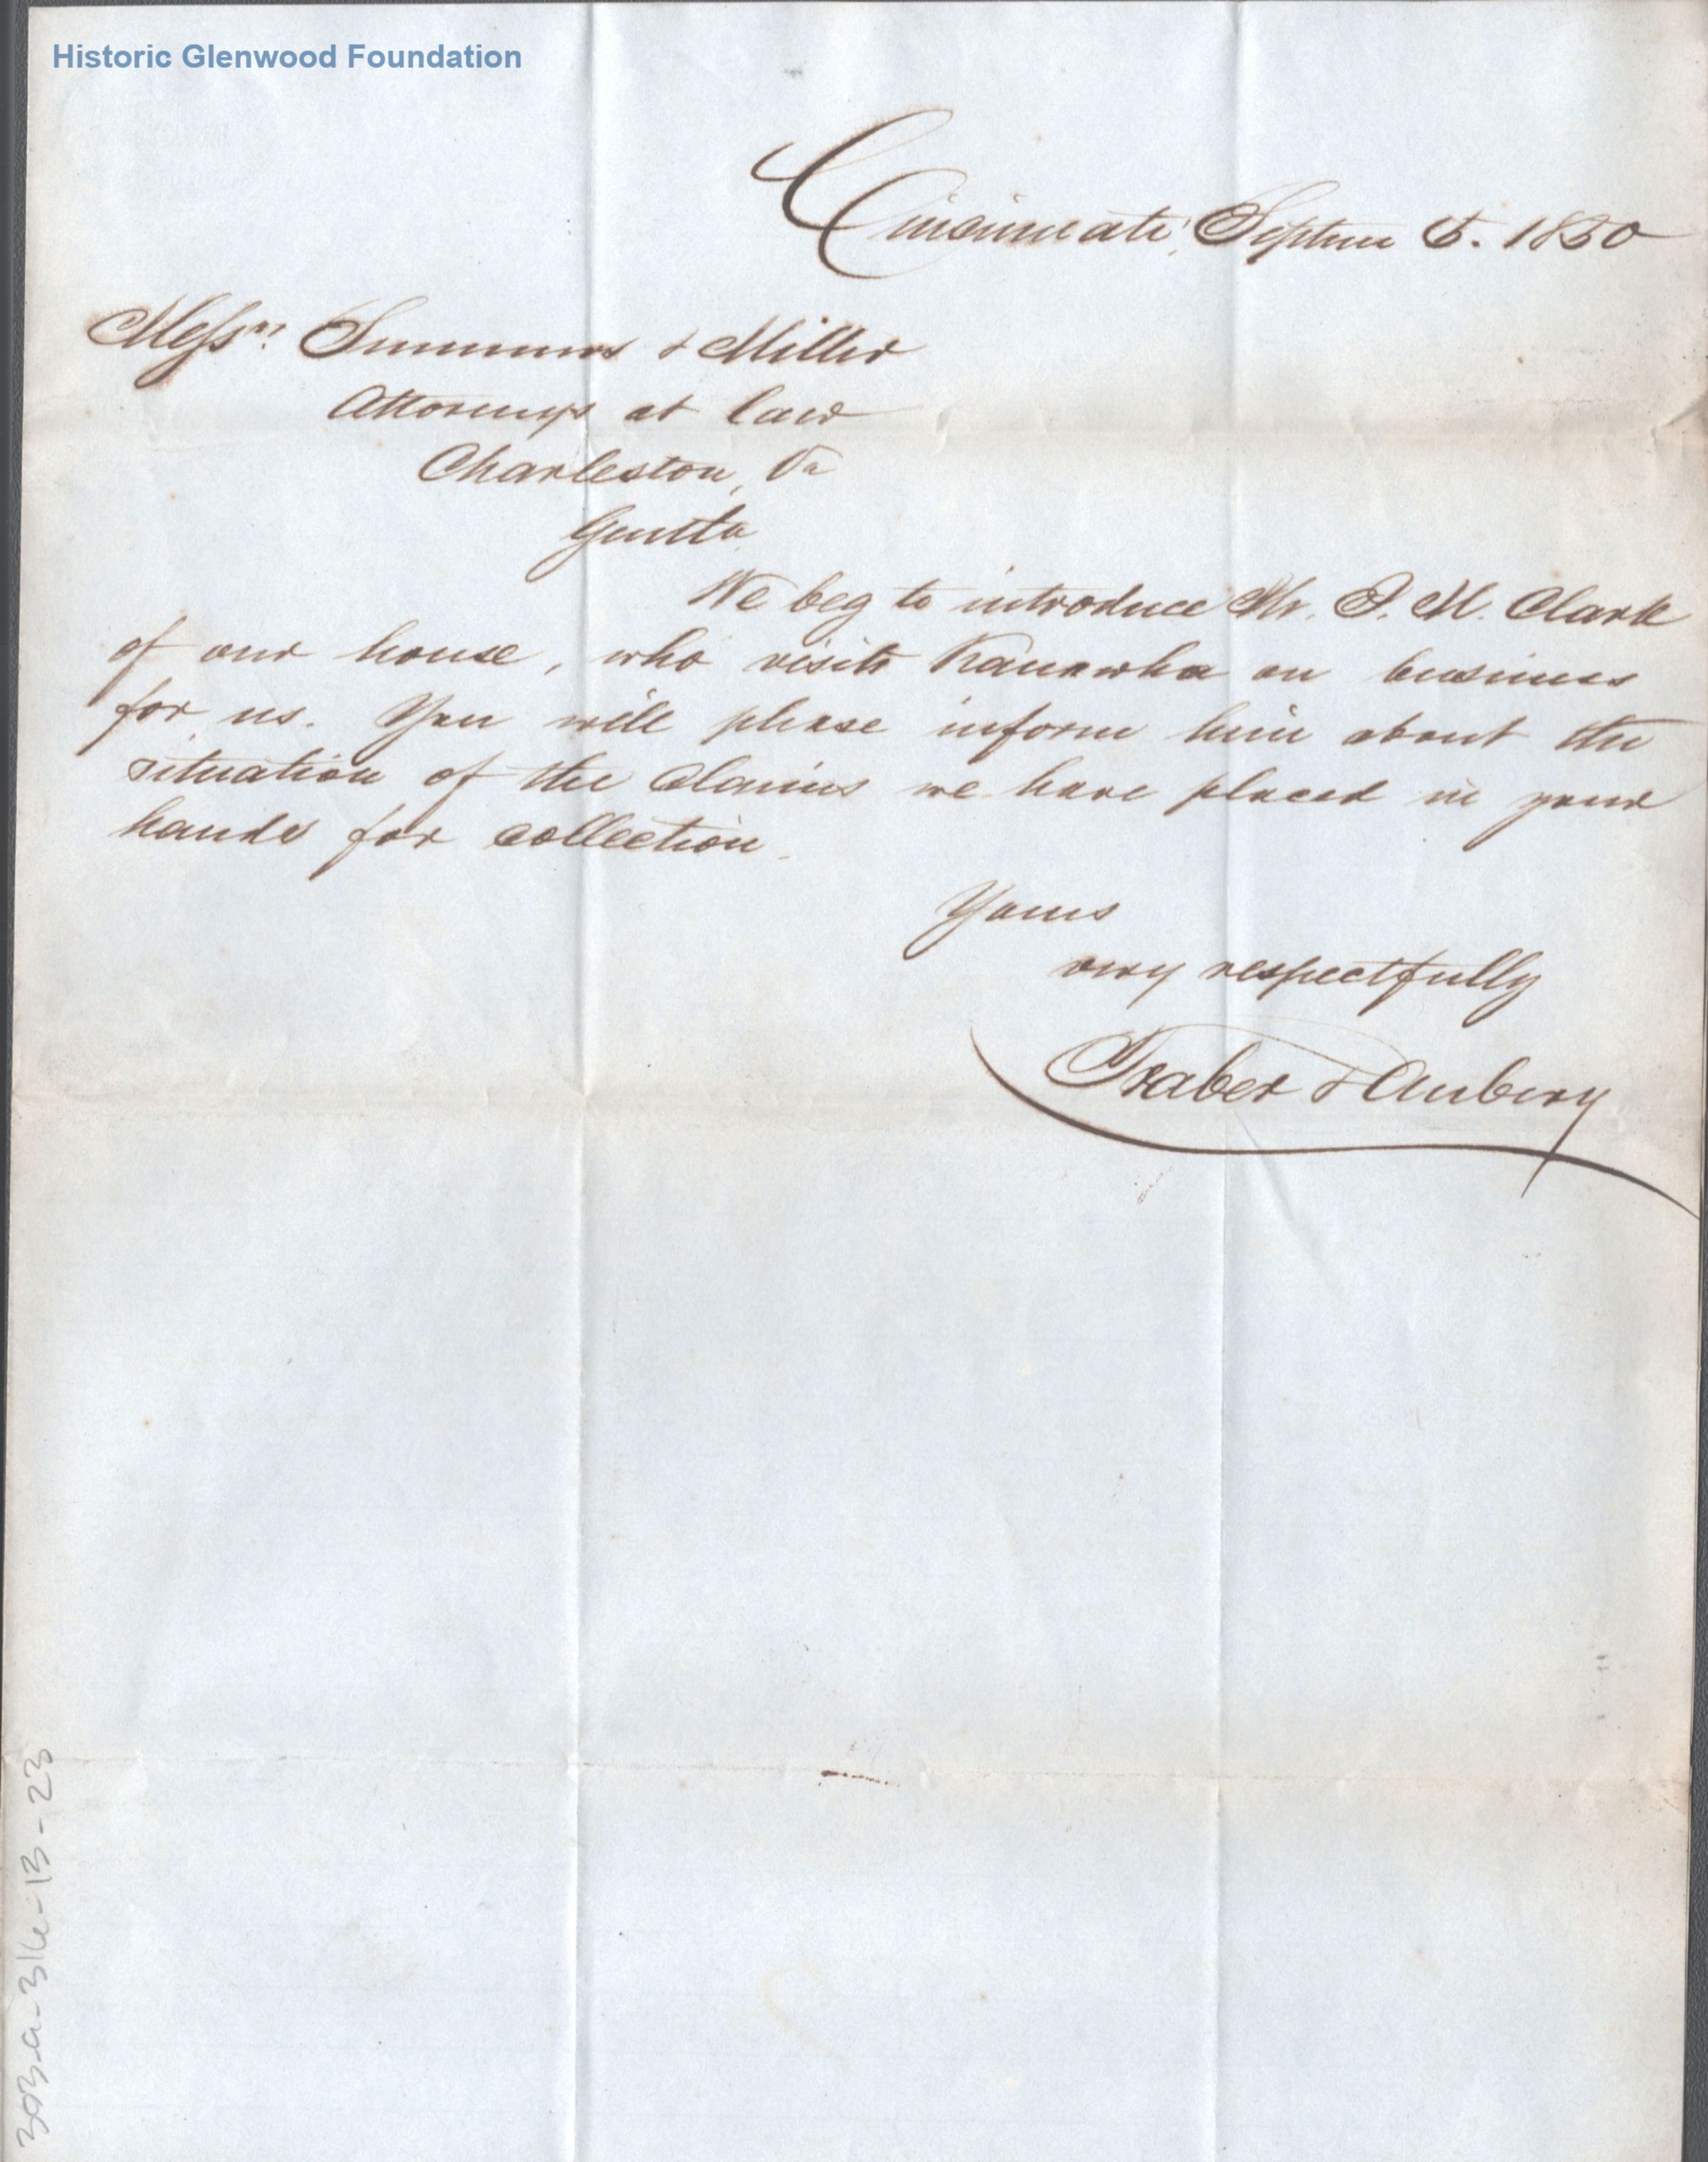 Historic Glenwood Foundation
Cincinnati, Septem 5. 1850
Messrs. Summers & Miller
Attorneys at Law
Charleston, Va
Gentln
We beg to introduce Mr. J. M. Clark
of our house, who visits Kanawha on business
for us. You will please inform him about the
situation of the Claims we have placed in your
hands for collection.
Yours
very respectfully
Traber & Aubery
303-a-316-13-23